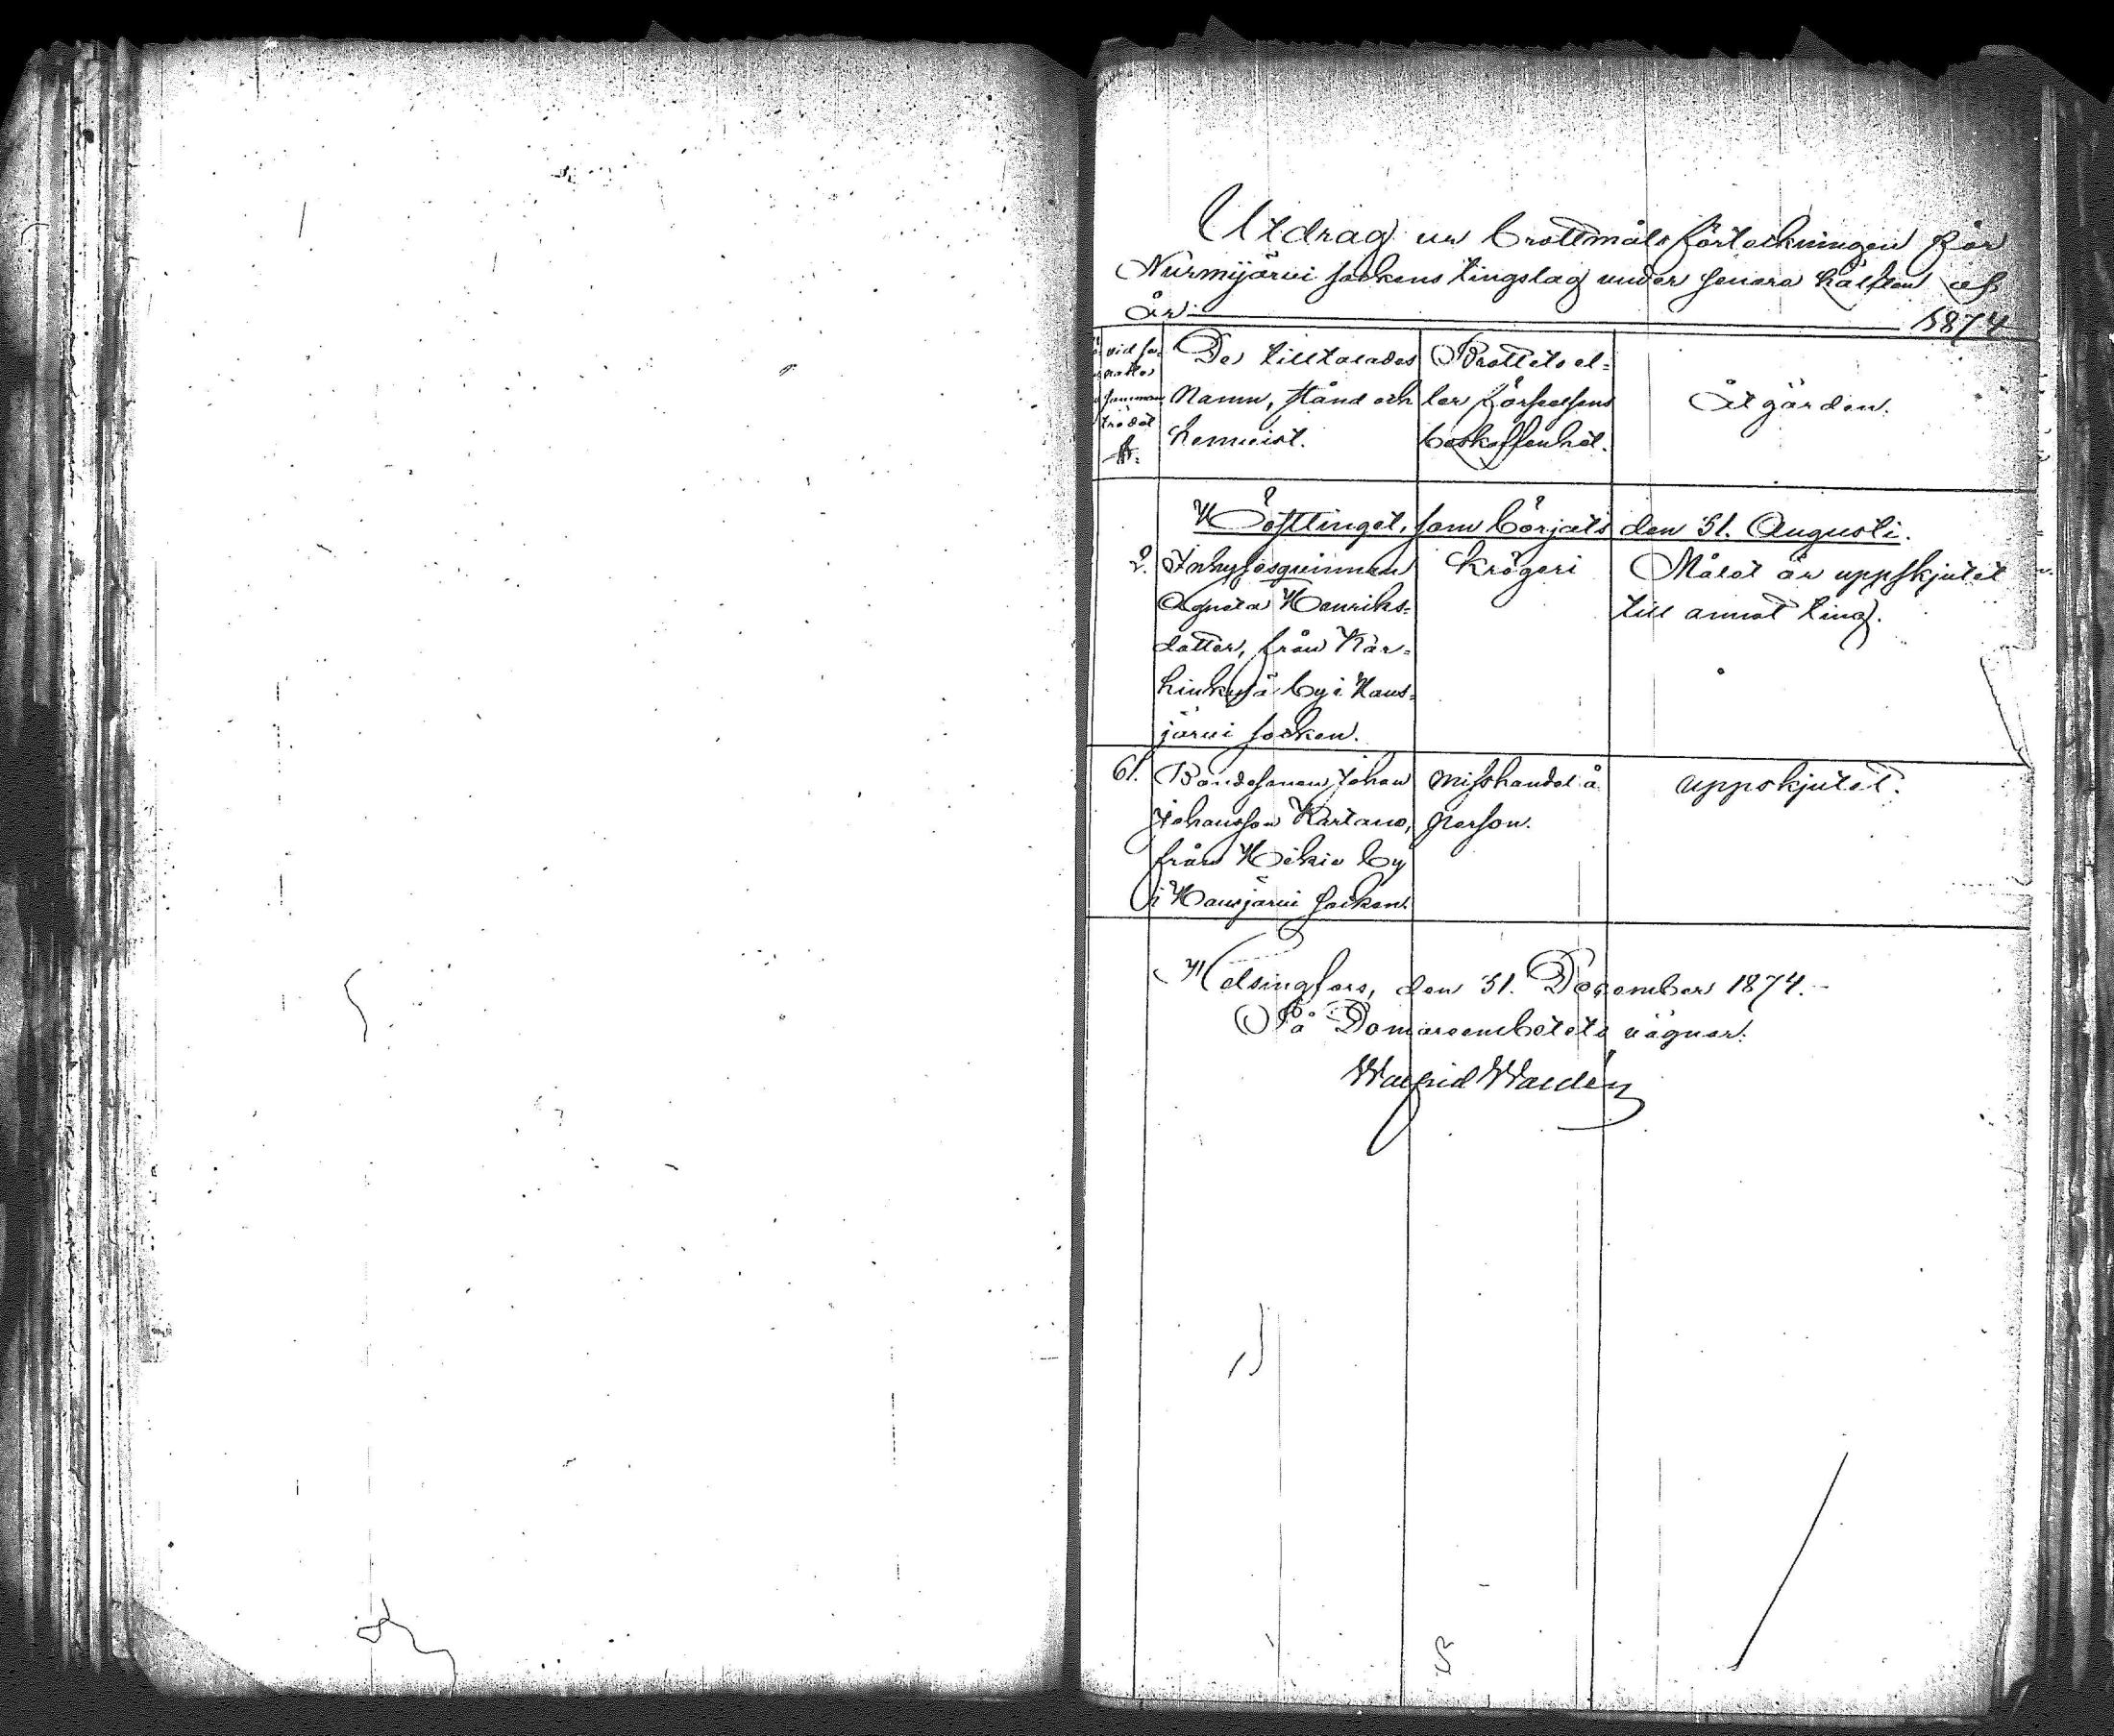 Utdrag ur brottmåls förteckningen för
Nurmijärvi sockens tingslag under senare hälften af
År 1874
vid la-
samman
trädet
№
De tilltalades
Namn, stånd och
hemvist.
Brottets el-
ler förseelsens
beskaffenhet.
Åtgärden.
Hösttinget, som börjats den 31. Augusti.
2. Inhysesqvinnan
Agneta Henriks-
dotter, från Kar-
hinkylä by i Haus-
järvi socken.
krögeri
Målet är uppskjutet
till annat ting.
61. Bondesonen Johan
Johansson Kartano,
från Hikiä by
i Hausjärvi socken.
misshandel å
person.
uppskjutet.
Helsingfors, den 31. December 1874.
På Domareembetets vägnar:
Walfrid Waldén